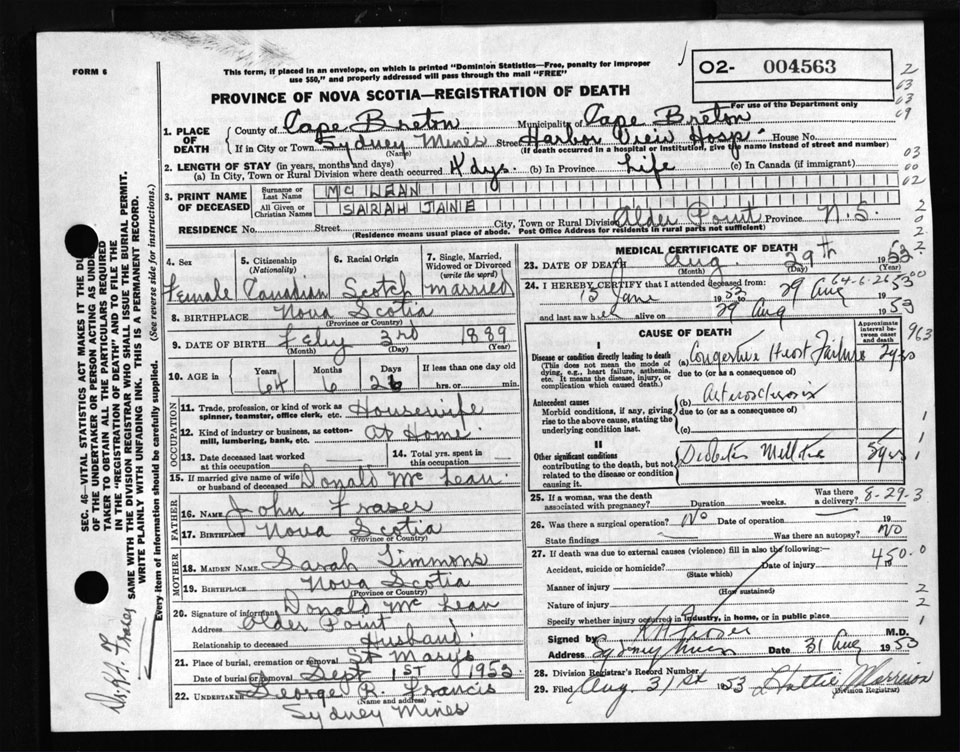 FORM 6
This form, if placed in an envelope, on which is printed "Dominion Statistics—Free, penalty for improper
use $50," and properly addressed will pass through the mail "FREE"
02- 004563
PROVINCE OF NOVA SCOTIA—REGISTRATION OF DEATH
For use of the Department only
1. PLACE OF DEATH
County of Cape Breton Municipality of Cape Breton
If in City or Town Sydney Mines Street Harbor View Hosp. House No.
(Name) (If death occurred in a hospital or institution, give the name instead of street and number)
2. LENGTH OF STAY (in years, months and days)
(a) In City, Town or Rural Division where death occurred dys. (b) In Province Life (c) In Canada (if immigrant)
3. PRINT NAME OF DECEASED
Surname or Last Name MC LEAN
All Given or Christian Names SARAH JANE
RESIDENCE No. Street City, Town or Rural Division Alder Point Province N.S.
(Residence means usual place of abode. Post Office Address for residents in rural parts not sufficient)
4. Sex Female
5. Citizenship (Nationality) Canadian
6. Racial Origin Scotch
7. Single, Married, Widowed or Divorced (write the word) married
8. BIRTHPLACE Nova Scotia
(Province or Country)
9. DATE OF BIRTH Feby 3rd 1889
(Month) (Day) (Year)
10. AGE in Years Months Days If less than one day old
64 6 26 hrs. or min.
OCCUPATION
11. Trade, profession, or kind of work as spinner, teamster, office clerk, etc. Housewife
12. Kind of industry or business, as cotton-mill, lumbering, bank, etc. At Home
13. Date deceased last worked at this occupation
14. Total yrs. spent in this occupation
15. If married give name of wife or husband of deceased Donald Mc Lean
FATHER
16. Name John Fraser
17. Birthplace Nova Scotia
(Province or Country)
MOTHER
18. MAIDEN NAME Sarah Timmons
19. BIRTHPLACE Nova Scotia
(Province or Country)
20. Signature of informant Donald Mc Lean
Address Alder Point
Relationship to deceased Husband
21. Place of burial, cremation or removal St Marys
Date of burial or removal Sept 1st 1953
22. UNDERTAKER George R. Francis
(Name and address)
Sydney Mines
MEDICAL CERTIFICATE OF DEATH
23. DATE OF DEATH Aug 29th 1953
(Month) (Day) (Year)
64-6-26
24. I HEREBY CERTIFY that I attended deceased from:
15 June 19 to 29 Aug 1953
and last saw h er alive on 29 Aug 1953
CAUSE OF DEATH
Approximate interval between onset and death
I
Disease or condition directly leading to death (a) Congestive Heart Failure 2yrs
(This does not mean the mode of dying, e.g., heart failure, asthenia, etc. It means the disease, injury, or complication which caused death.)
due to (or as a consequence of)
Antecedent causes (b) Arteriosclerosis
Morbid conditions, if any, giving rise to the above cause, stating the underlying condition last.
due to (or as a consequence of)
(c)
II
Other significant conditions contributing to the death, but not related to the disease or condition causing it. Diabetes Mellitus 5yrs
25. If a woman, was the death associated with pregnancy? Duration weeks. Was there a delivery?
8-29-3
26. Was there a surgical operation? No Date of operation 19
State findings Was there an autopsy? No
27. If death was due to external causes (violence) fill in also the following:
450.0
Accident, suicide or homicide? Date of injury 19
(State which)
Manner of injury
(How sustained)
Nature of injury
Specify whether injury occurred in industry, in home, or in public place
Signed by H A Fraser M.D.
Address Sydney Mines Date 31 Aug 1953
28. Division Registrar's Record Number
29. Filed Aug. 31st 1953 Hattie Morrison
(Division Registrar)
SEC. 46—VITAL STATISTICS ACT MAKES IT THE DU
OF THE UNDERTAKER OR PERSON ACTING AS UNDE
TAKER TO OBTAIN ALL THE PARTICULARS REQUIRED
IN THE "REGISTRATION OF DEATH" AND TO FILE THE
SAME WITH THE DIVISION REGISTRAR WHO SHALL ISSUE THE BURIAL PERMIT.
WRITE PLAINLY WITH UNFADING INK. THIS IS A PERMANENT RECORD.
Every item of information should be carefully supplied.
(See reverse side for instructions.)